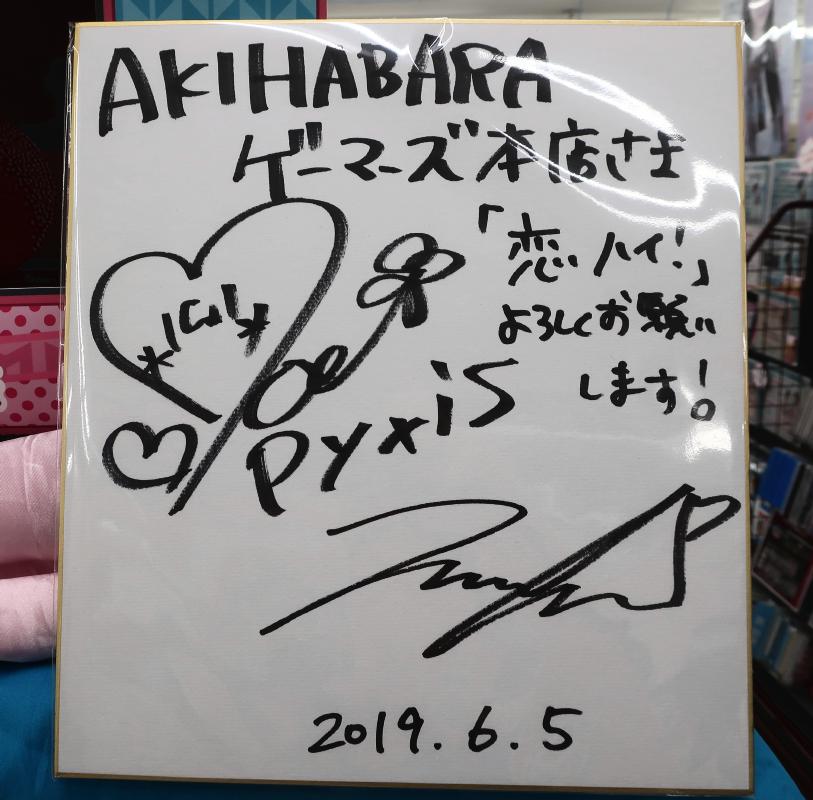 AKIHABARA
ゲーマーズ本店さま
「恋ハイ!」
よろしくお願い
します!
pyxis
2019.6.5